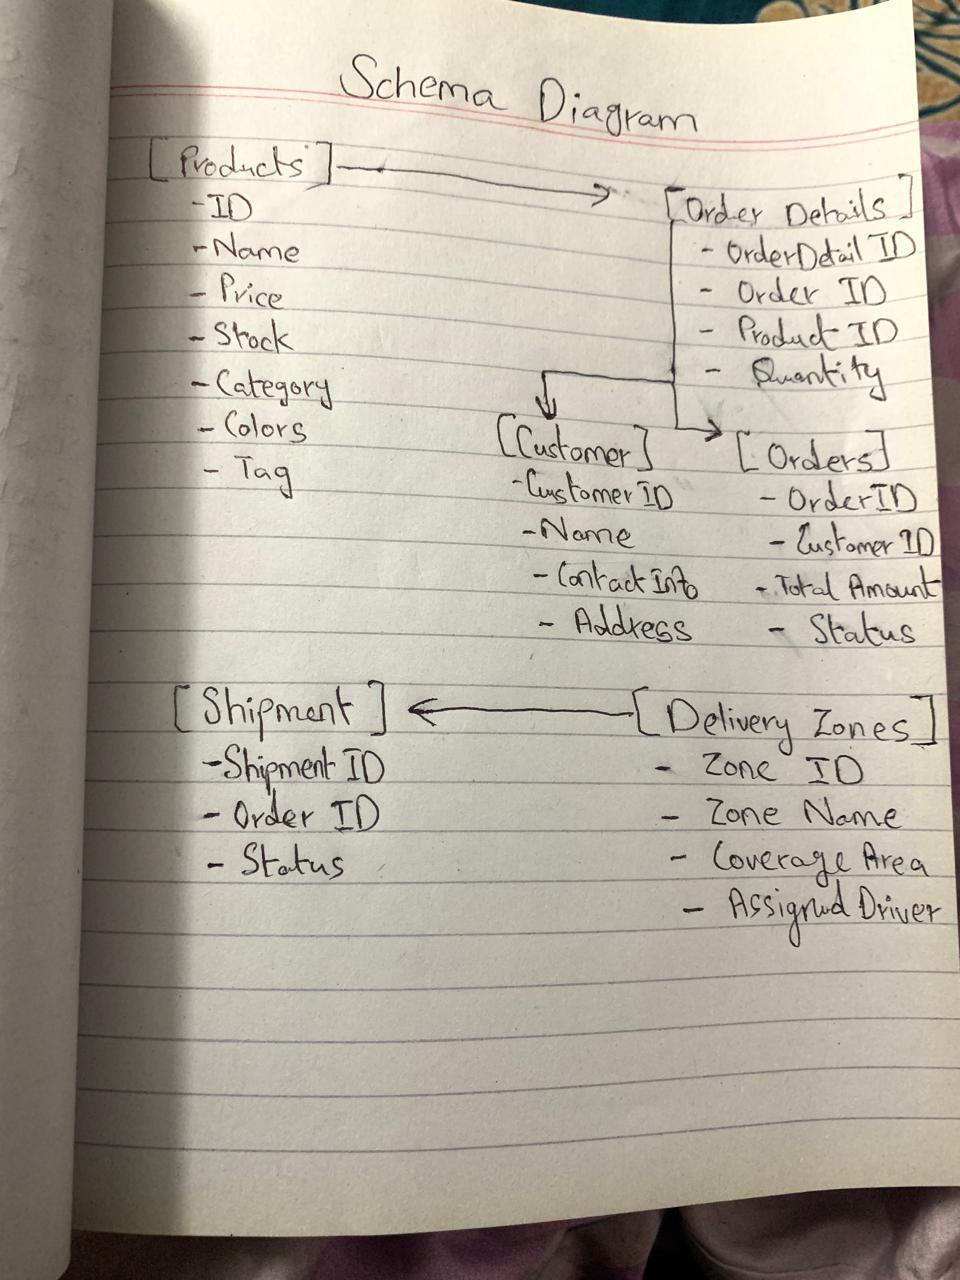 Schema Diagram
[Products]
- ID
- Name
- Price
- Stock
- Category
- Colors
- Tag
[Order Details]
- OrderDetail ID
- Order ID
- Product ID
- Quantity
[Customer]
- Customer ID
- Name
- Contact Info
- Address
[Orders]
- Order ID
- Customer ID
- Total Amount
- Status
[Shipment]
- Shipment ID
- Order ID
- Status
[Delivery Zones]
- Zone ID
- Zone Name
- Coverage Area
- Assigned Driver